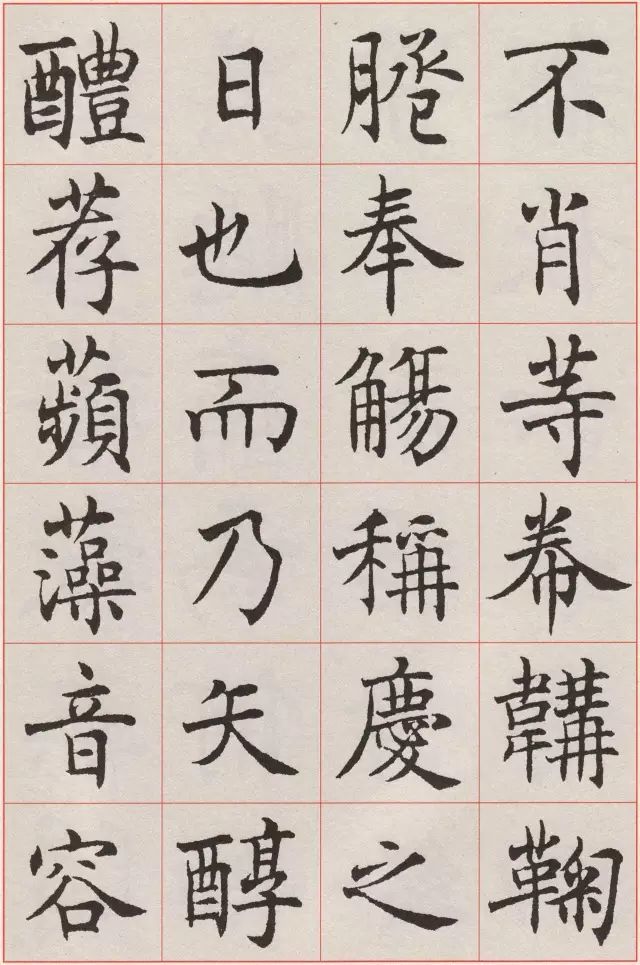 不肖等帣韝鞠
奉觴稱慶之
日也而乃矢醇
醴荐蘋藻音容